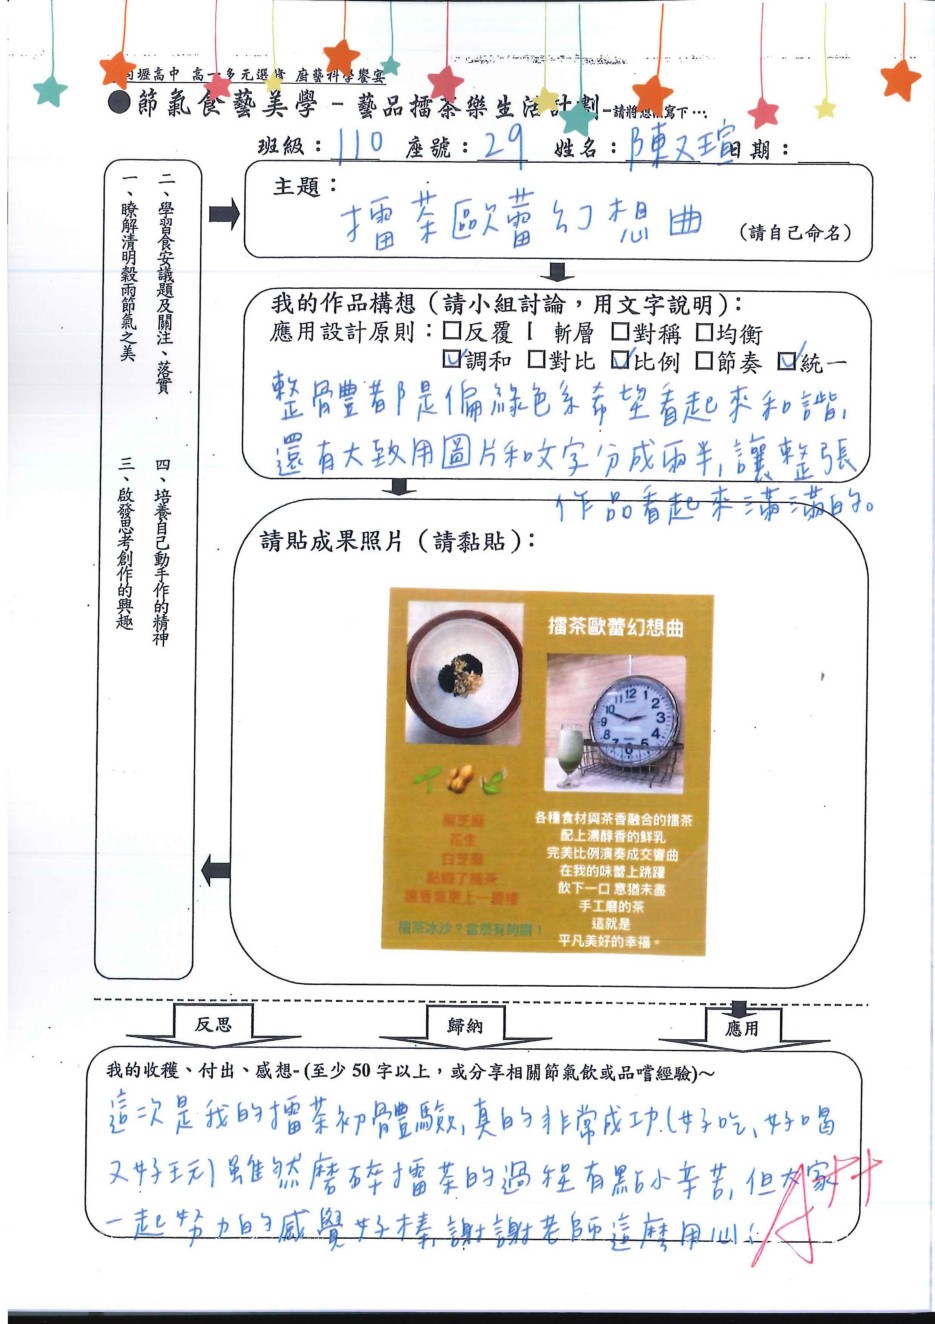 內壢高中 高一多元選修 廚藝科學饗宴
●節氣食藝美學－藝品擂茶樂生活計劃
班級：110 座號：29 姓名：陳又瑄 日期：
一、瞭解清明穀雨節氣之美
二、學習食安議題及關注、落實
三、啟發思考創作的興趣
四、培養自己動手作的精神
主題：
擂茶歐蕾幻想曲
（請自己命名）
我的作品構想（請小組討論，用文字說明）：
應用設計原則：□反覆 漸層 □對稱 □均衡
☑調和 □對比 ☑比例 □節奏 ☑統一
整體都是偏綠色系希望看起來和諧，
還有大致用圖片和文字分成兩半，讓整張
作品看起來滿滿的。
請貼成果照片（請黏貼）：
擂茶歐蕾幻想曲
12 1 2 3 5 6 7 8 9 10 11
黑芝麻
花生
白芝麻
點綴了擂茶
讓香氣更上一層樓
擂茶冰沙？當然有夠讚！
各種食材與茶香融合的擂茶
配上濃醇香的鮮乳
完美比例演奏成交響曲
在我的味蕾上跳躍
飲下一口 意猶未盡
手工磨的茶
這就是
平凡美好的幸福。
反思
歸納
應用
我的收穫、付出、感想-(至少 50 字以上，或分享相關節氣飲或品嚐經驗)～
這次是我的擂茶初體驗，真的非常成功(好吃、好喝
又好玩)雖然磨碎擂茶的過程有點小辛苦，但大家
一起努力的感覺好棒，謝謝老師這麼用心：
A++